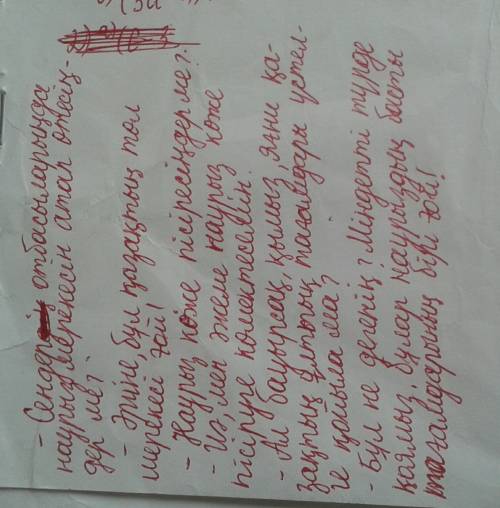 - Сендер отбасыларыңда
наурыз мерекесін атап өтесің-
дер ме?
- Әрине, бұл қазақтың төл
мерекесі ғой!
- Наурыз көже пісіресіңдер ме?
- Иә, мен әжеме наурыз көже
пісіруге көмектесемін.
- Ал бауырсақ, қымыз, яғни қа-
зақтың ұлттық тағамдары үстел-
ге қойыла ма?
- Бұл не дегенің? Міндетті түрде
қоямыз, бұлар наурыздың басты
тағамдарының бірі ғой!